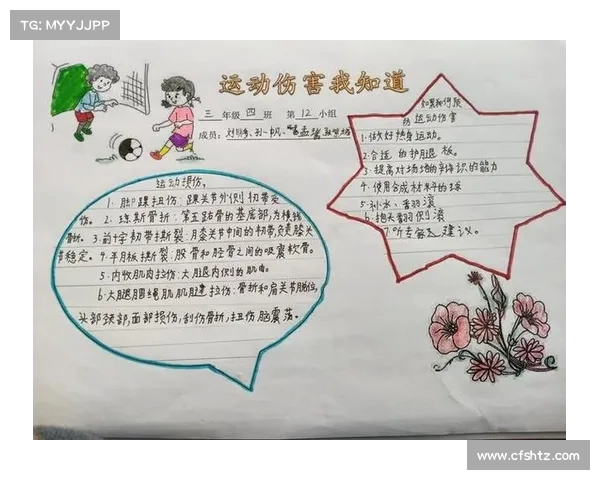 TG: MYYJJPP
运动伤害我知道
三 年级 四 班 第 12 小组
成员:
如果预防
防 运动伤害
1.做好热身运动。
2.合适的护腿板。
3.提高对场地的意识的能力
4.使用合成材料的球
5.补水、翻滚
6.抱头翻侧滚
7.听专家建议。
运动损伤,
1.脚踝扭伤:踝关节外侧韧带受
伤。2.琼斯骨折:第五跖骨的基底部,为横线
骨折。3.前十字韧带撕裂:膝关节中间的韧带,负责膝关
节稳定。4.半月板撕裂:股骨和胫骨之间的吸震软骨。
5.内收肌肉拉伤:大腿内侧的肌肉。
6.大腿腘绳肌肌腱拉伤:骨折和肩关节脱位,
头部颈部,面部损伤,刮伤骨折,扭伤脑震荡。
www.cfshtz.com